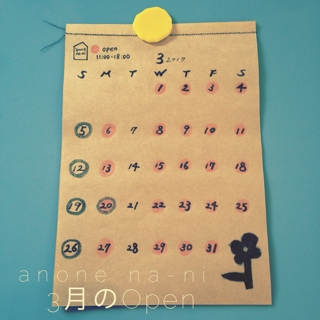 open
11:00-18:00
3 2017
S M T W T F S
1 2 3 4
5 6 7 8 9 10 11
12 13 14 15 16 17 18
19 20 21 22 23 24 25
26 27 28 29 30 31
anone na-ni
3月のOpen